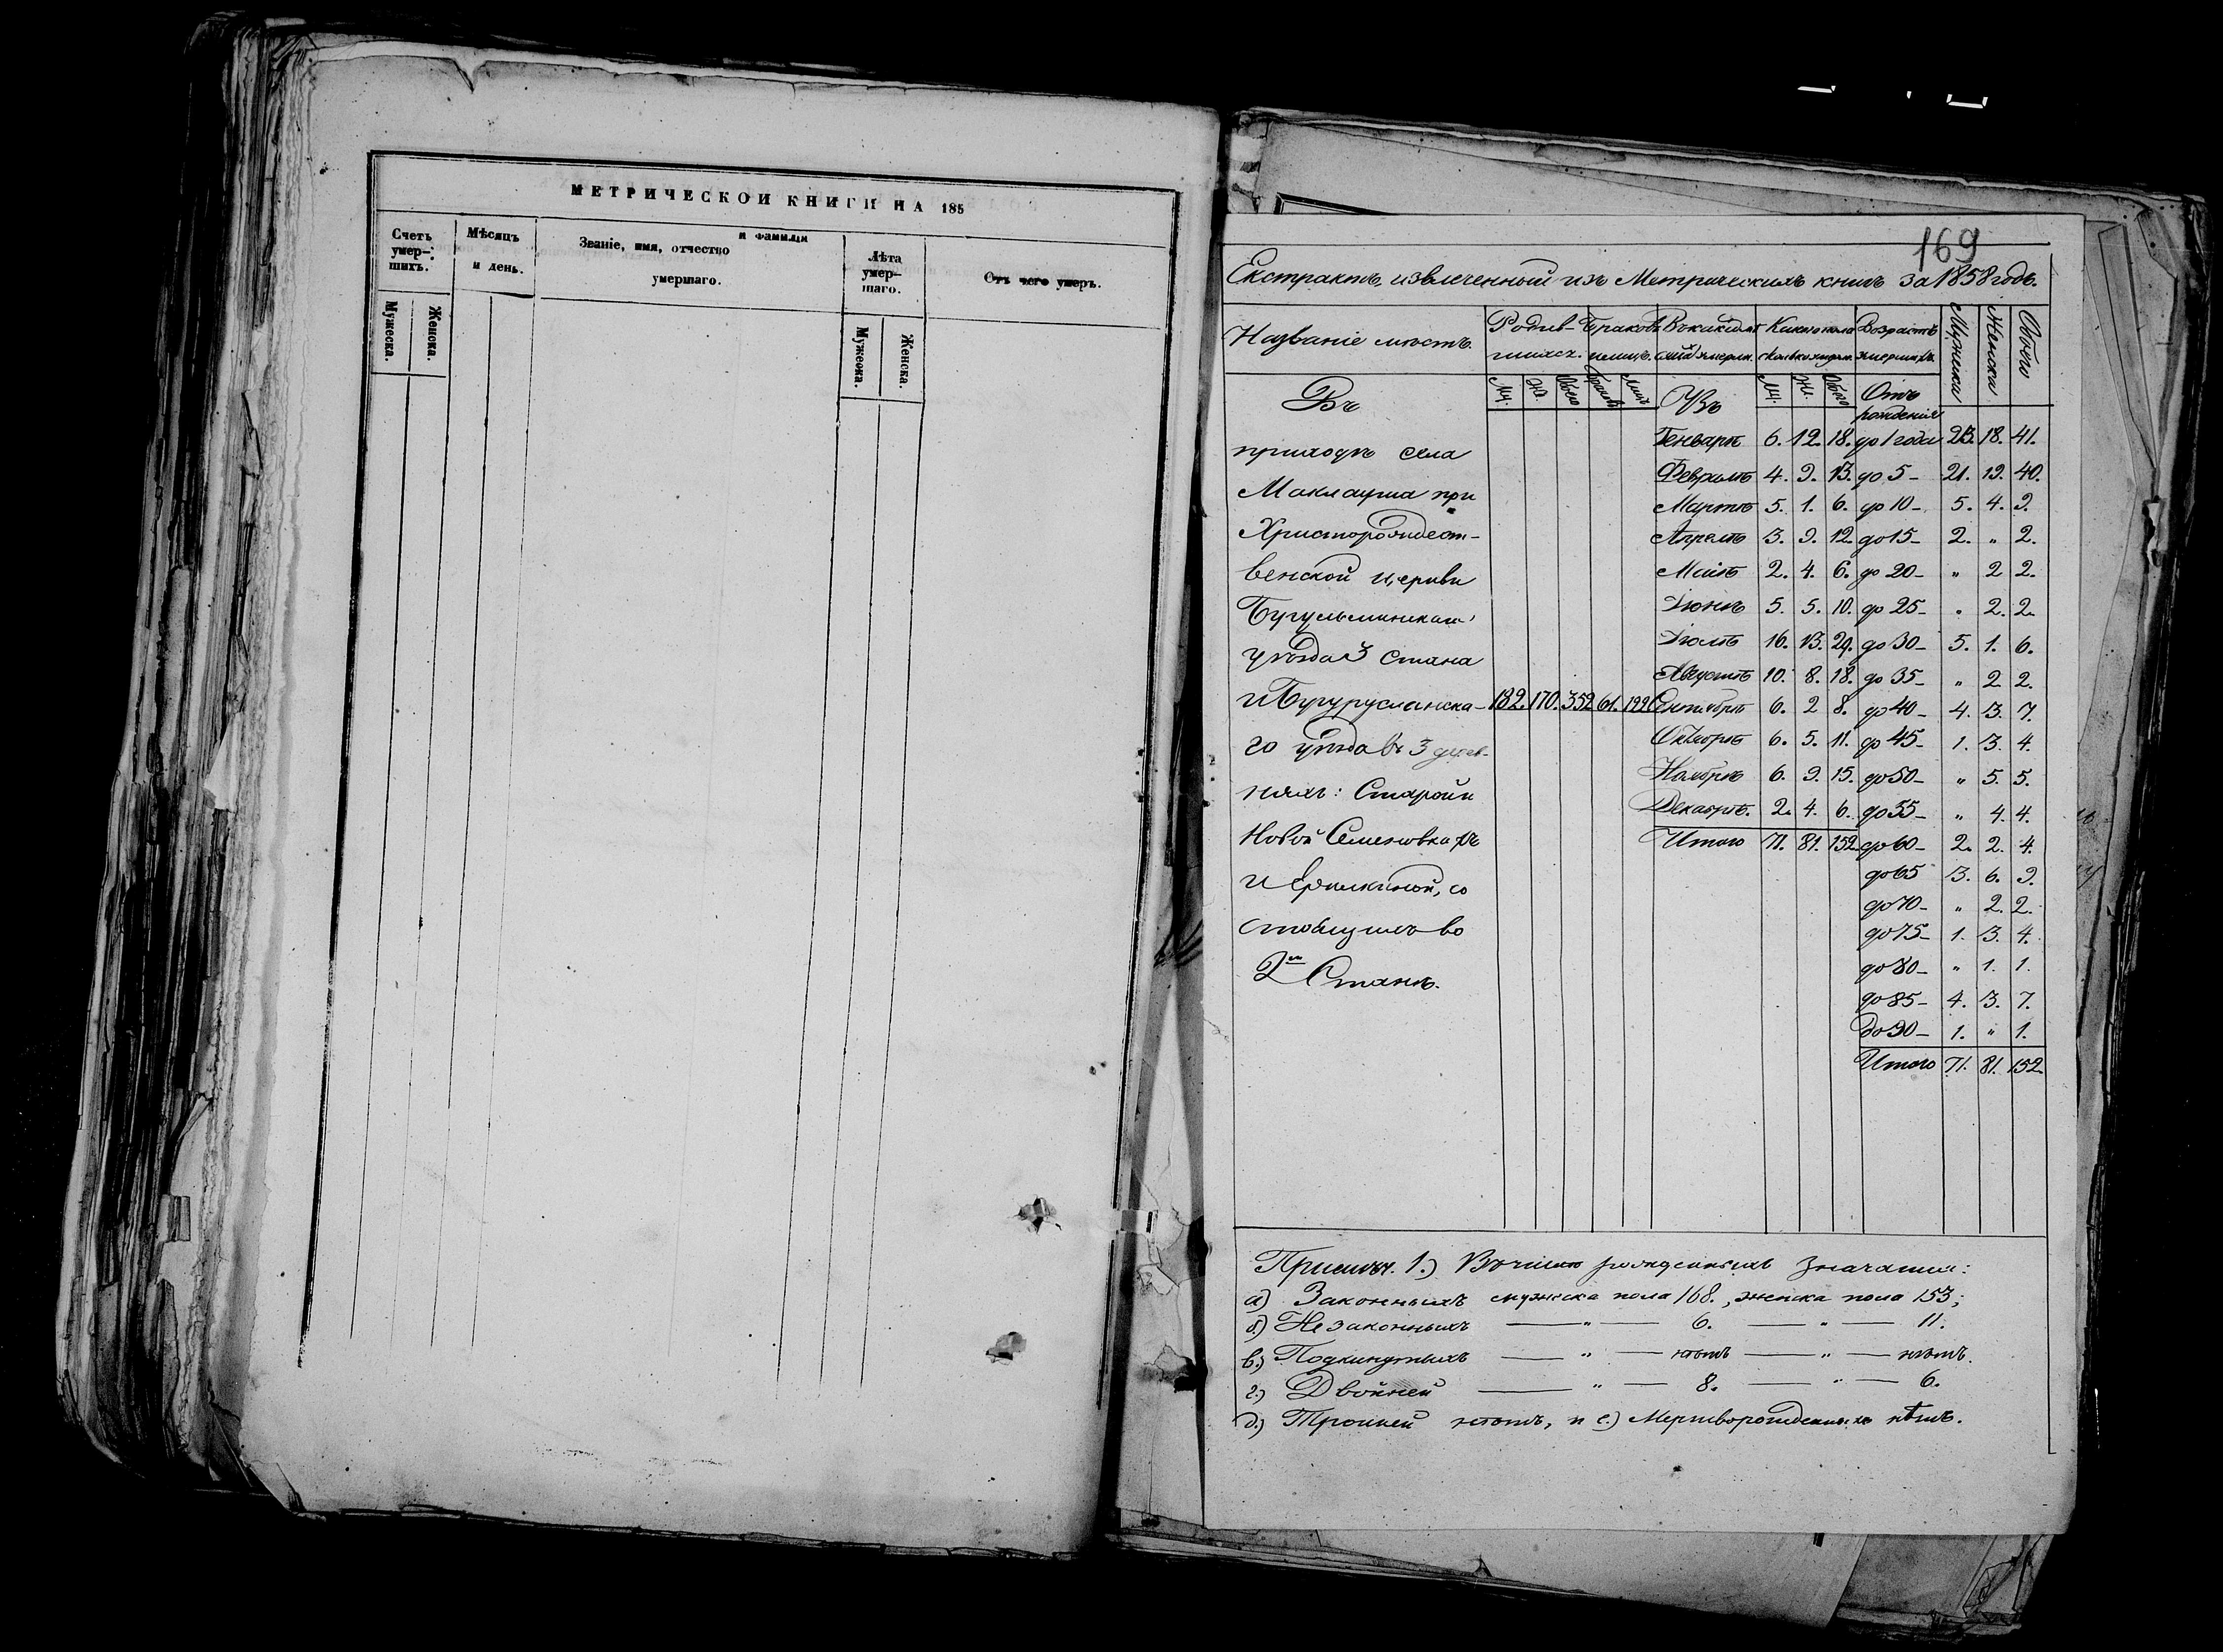 МЕТРИЧЕСКОЙ КНИГИ НА 185
Счетъ умер-шихъ.
Мужеска.
Женска.
Мѣсяцъ и день.
Званіе, имя, отчество и фамилія умершаго.
Лѣта умер-шаго.
Мужеска.
Женска.
Отъ чего умеръ.
169
Екстрактъ, извлеченный изъ Метрическихъ книгъ за 1858 годъ.
Названіе мѣстъ. Родив-шихся. Браковъ Въ какихъ Какого пола Возрастъ умершихъ. Мужска Женска Обоего
Въ Му. Же. Обоего Въ Му. Же. Обоего Отъ рожденія
Генварѣ 6. 12. 18. до 1 года 23. 18. 41.
приходѣ села
Февралѣ 4. 9. 13. до 5 – 21. 19. 40.
Маклауша при
Мартѣ 5. 1. 6. до 10 – 5. 4. 9.
Христорождест-
Апрелѣ 3. 9. 12. до 15 – 2. „ 2.
венской церкви
Маіѣ 2. 4. 6. до 20 – „ 2 2.
Бугульминскаго
Іюнѣ 5. 5. 10. до 25 – „ 2. 2.
уѣзда 3 стана
Іюлѣ 16. 13. 29. до 30 – 5. 1. 6.
Августѣ 10. 8. 18. до 35 – „ 2 2.
и Бугурусланска- 182. 170. 352. 61. 122 Сентябрѣ 6. 2 8. до 40 – 4. 3. 7.
го уѣзда въ 3 дерев-
Октябрѣ 6. 5. 11. до 45 – 1. 3. 4.
няхъ: Старой и
Ноябрѣ 6. 9. 15. до 50 – „ 5. 5.
Декабрѣ. 2. 4. 6. до 55 – „ 4. 4.
Новой Семеновкахъ
Итого 71. 81. 152. до 60 – 2. 2. 4.
и Ерилкиной, со
до 65 3. 6. 9.
до 70 – „ 2. 2.
стоящихъ во
до 75 – 1. 3. 4.
2м Станѣ.
до 80 – „ 1. 1.
до 85 – 4. 3. 7.
До 90 – 1. „ 1.
Итого 71. 81. 152.
Примѣч. 1.) Въ числѣ рожденныхъ значатся:
а) Законныхъ мужеска пола 168., женска пола 153;
б.) Незаконныхъ — „ — 6. — „ — 11.
в.) Подкинутыхъ — „ — нѣтъ — „ — нѣтъ.
г.) Двойней — „ — 8. — „ — 6.
д.) Тройней нѣтъ, и е.) Мертворожденныхъ нѣтъ.